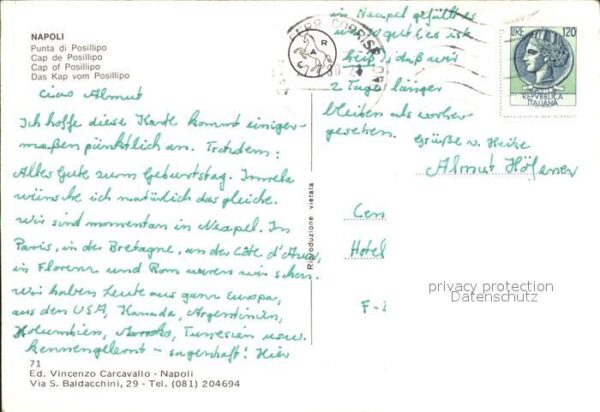 NAPOLI
Punta di Posillipo
Cap de Posillipo
Cap of Posillipo
Das Kap vom Posillipo
Ciao Almut
Ich hoffe diese Karte kommt einiger-
maßen pünktlich an. Trotzdem:
Alles Gute zum Geburtstag.
wünsche ich natürlich das gleiche.
Wir sind momentan in Neapel. In
Paris, in der Bretagne, an der Côte d'Azur,
in Florenz und Rom waren wir schon.
Wir haben Leute aus ganz Europa,
aus den USA, Kanada, Argentinien,
Kolumbien, Marokko, Tunesien usw.
kennengelernt - sagenhaft! Hier
71
Ed. Vincenzo Carcavallo - Napoli
Via S. Baldacchini, 29 - Tel. (081) 204694
Riproduzione vietata
in Neapel gefällt es
uns so gut
heiß, daß wir
2 Tage länger
bleiben als vorher
gesehen.
Grüße v. Heike
Almut
Hotel
F-
LIRE 120
REPVBBLICA
ITALIANA
privacy protection
Datenschutz